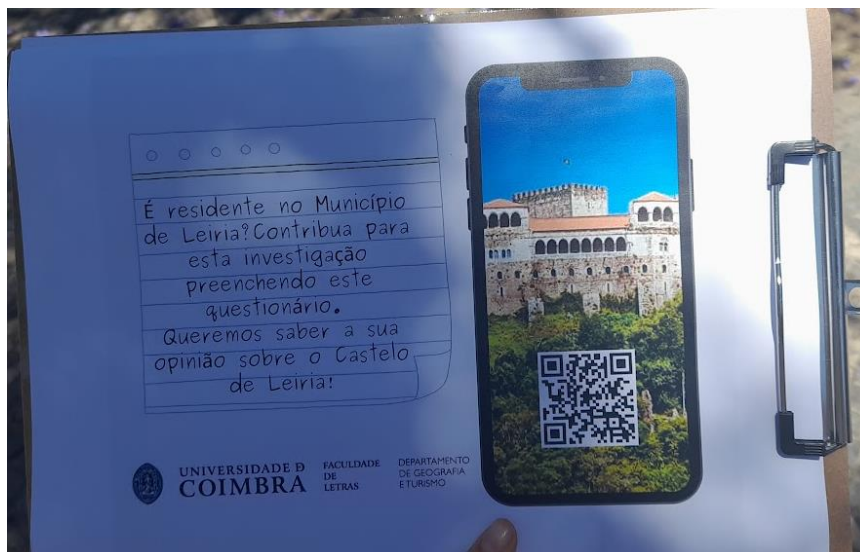 É residente no Município
de Leiria? Contribua para
esta investigação
preenchendo este
questionário.
Queremos saber a sua
opinião sobre o Castelo
de Leiria!
UNIVERSIDADE Ð
COIMBRA
FACULDADE
DE
LETRAS
DEPARTAMENTO
DE GEOGRAFIA
E TURISMO